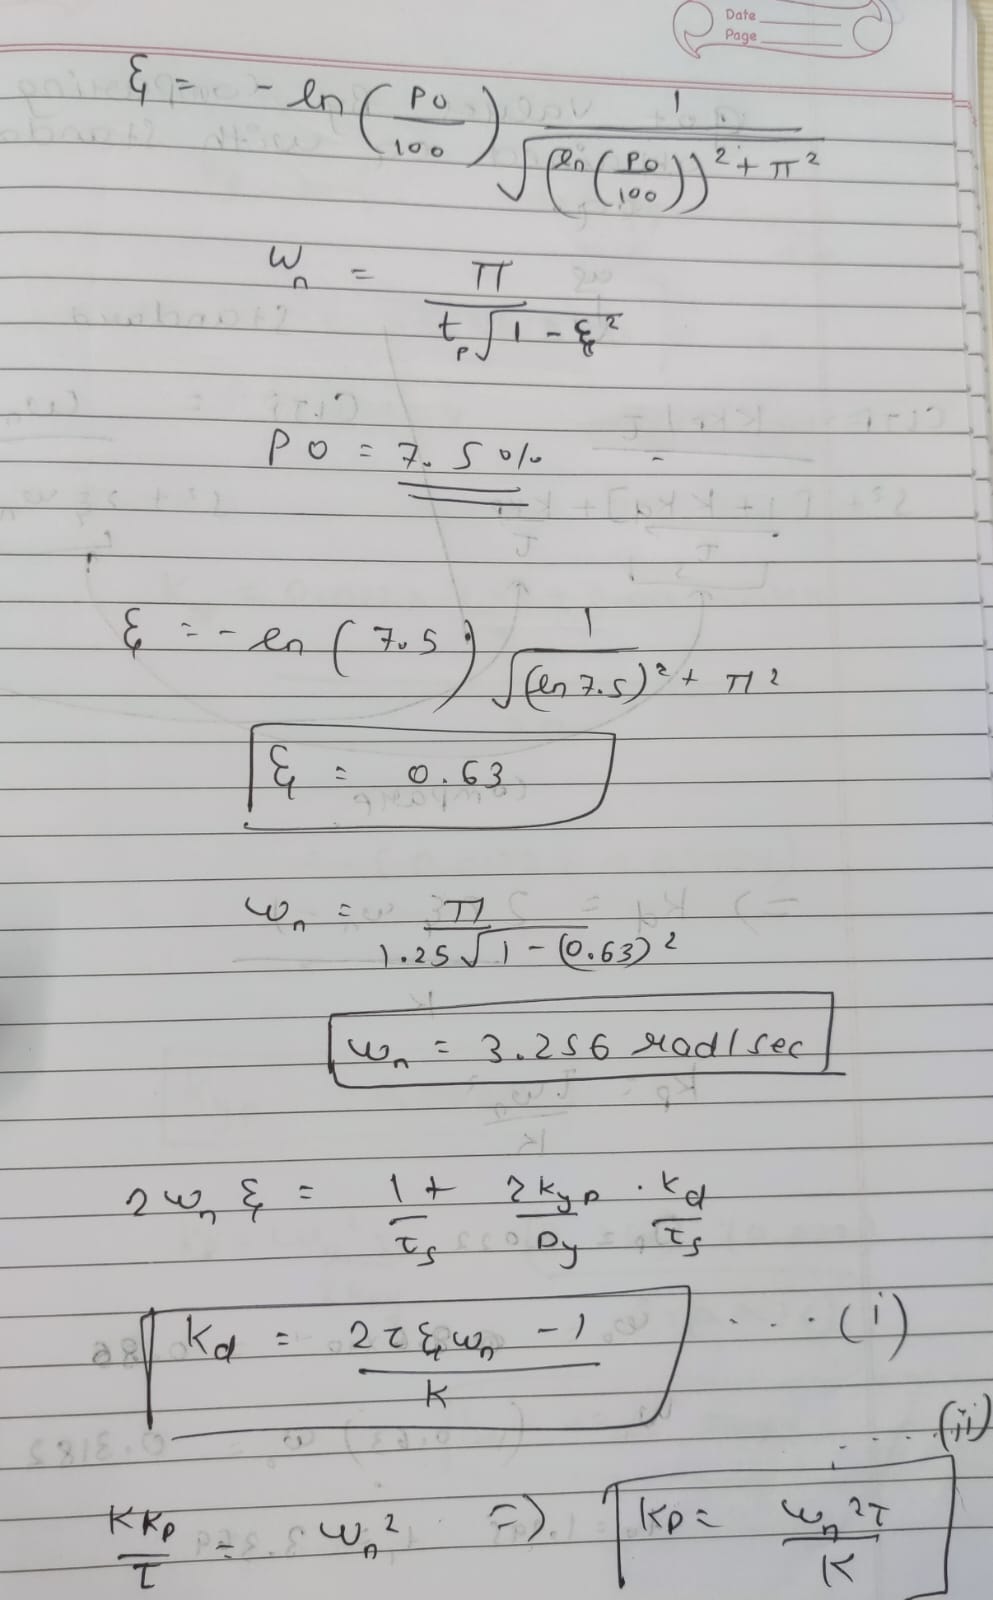 Date
Page
ξ = - ln (PO/100) 1/√((ln(PO/100))² + π²)
ωn = π/(tp√(1 - ξ²))
PO = 7.5 %
ξ = - ln (7.5) 1/√((ln 7.5)² + π²)
ξ = 0.63
ωn = π/(1.25√(1 - (0.63)²))
ωn = 3.256 rad/sec
2ωn ξ = 1/τs + 2kyp/Dy · kd/τs
kd = (2τξωn - 1)/K ... (i)
... (ii)
KKp/τ = ωn² => kp = ωn²τ/K